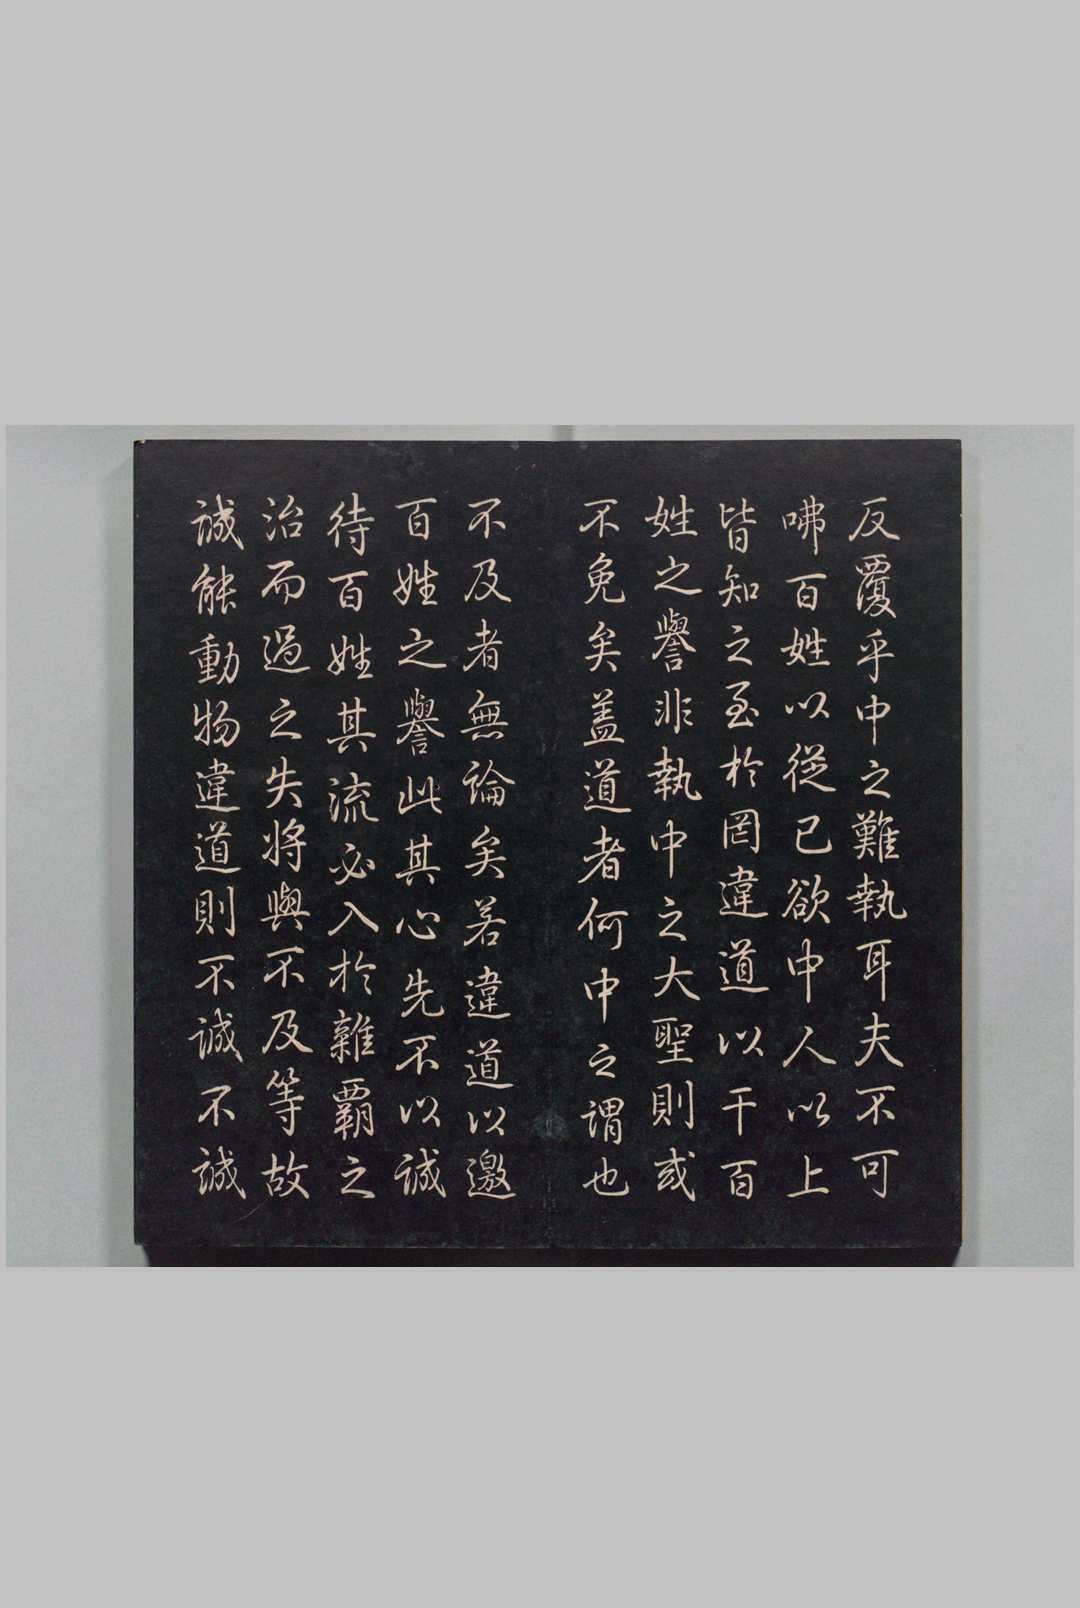 反覆乎中之難執耳夫不可
咈百姓以從己欲中人以上
皆知之至於罔違道以干百
姓之譽非執中之大聖則或
不免矣蓋道者何中之謂也
不及者無論矣若違道以邀
百姓之譽此其心先不以誠
待百姓其流必入於雜霸之
治而過之失將與不及等故
誠能動物違道則不誠不誠